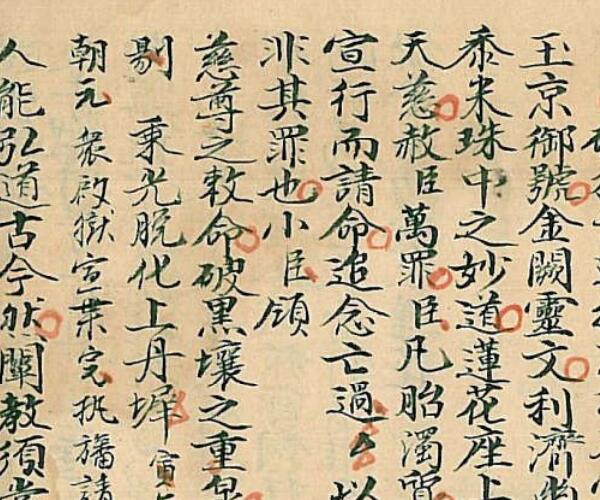 玉京御號金闕靈文利濟
黍米珠中之妙道蓮花座上
天慈赦臣萬罪臣凡胎濁質
宣行而請命追念亡過
非其罪也小臣領
慈尊之敕命破黑壤之重泉
剔 乘光脱化上丹墀宣
朝元 衆啟獄宣業完挑旛請
人能弘道古今然闡教須